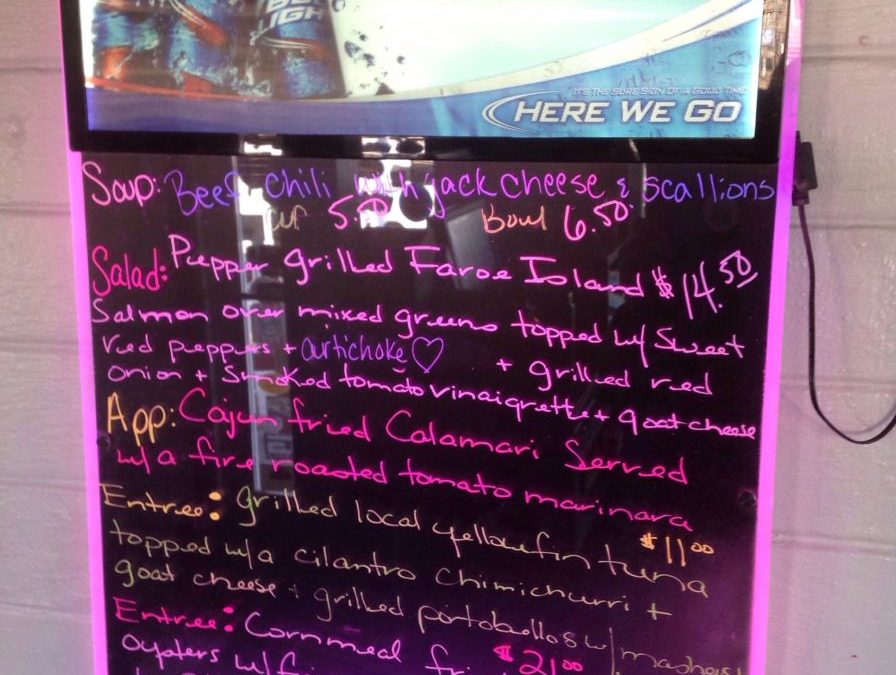 BUD LIGHT
IT'S THE SURE SIGN OF A GOOD TIME
HERE WE GO
Soup: Beef chili with jack cheese & scallions
cup 5.50 Bowl 6.50
Salad: Pepper grilled Faroe Island $14.50
Salmon over mixed greens topped w/ Sweet
red peppers + artichoke ♡ + grilled red
onion + Smoked tomato vinaigrette + goat cheese
App: Cajun fried Calamari Served
w/ a fire roasted tomato marinara
$11.00
Entree: grilled local yellowfin tuna
topped w/ a cilantro chimichurri +
goat cheese + grilled portobellos w/ mashers
$21.00
Entree: Cornmeal
oysters w/